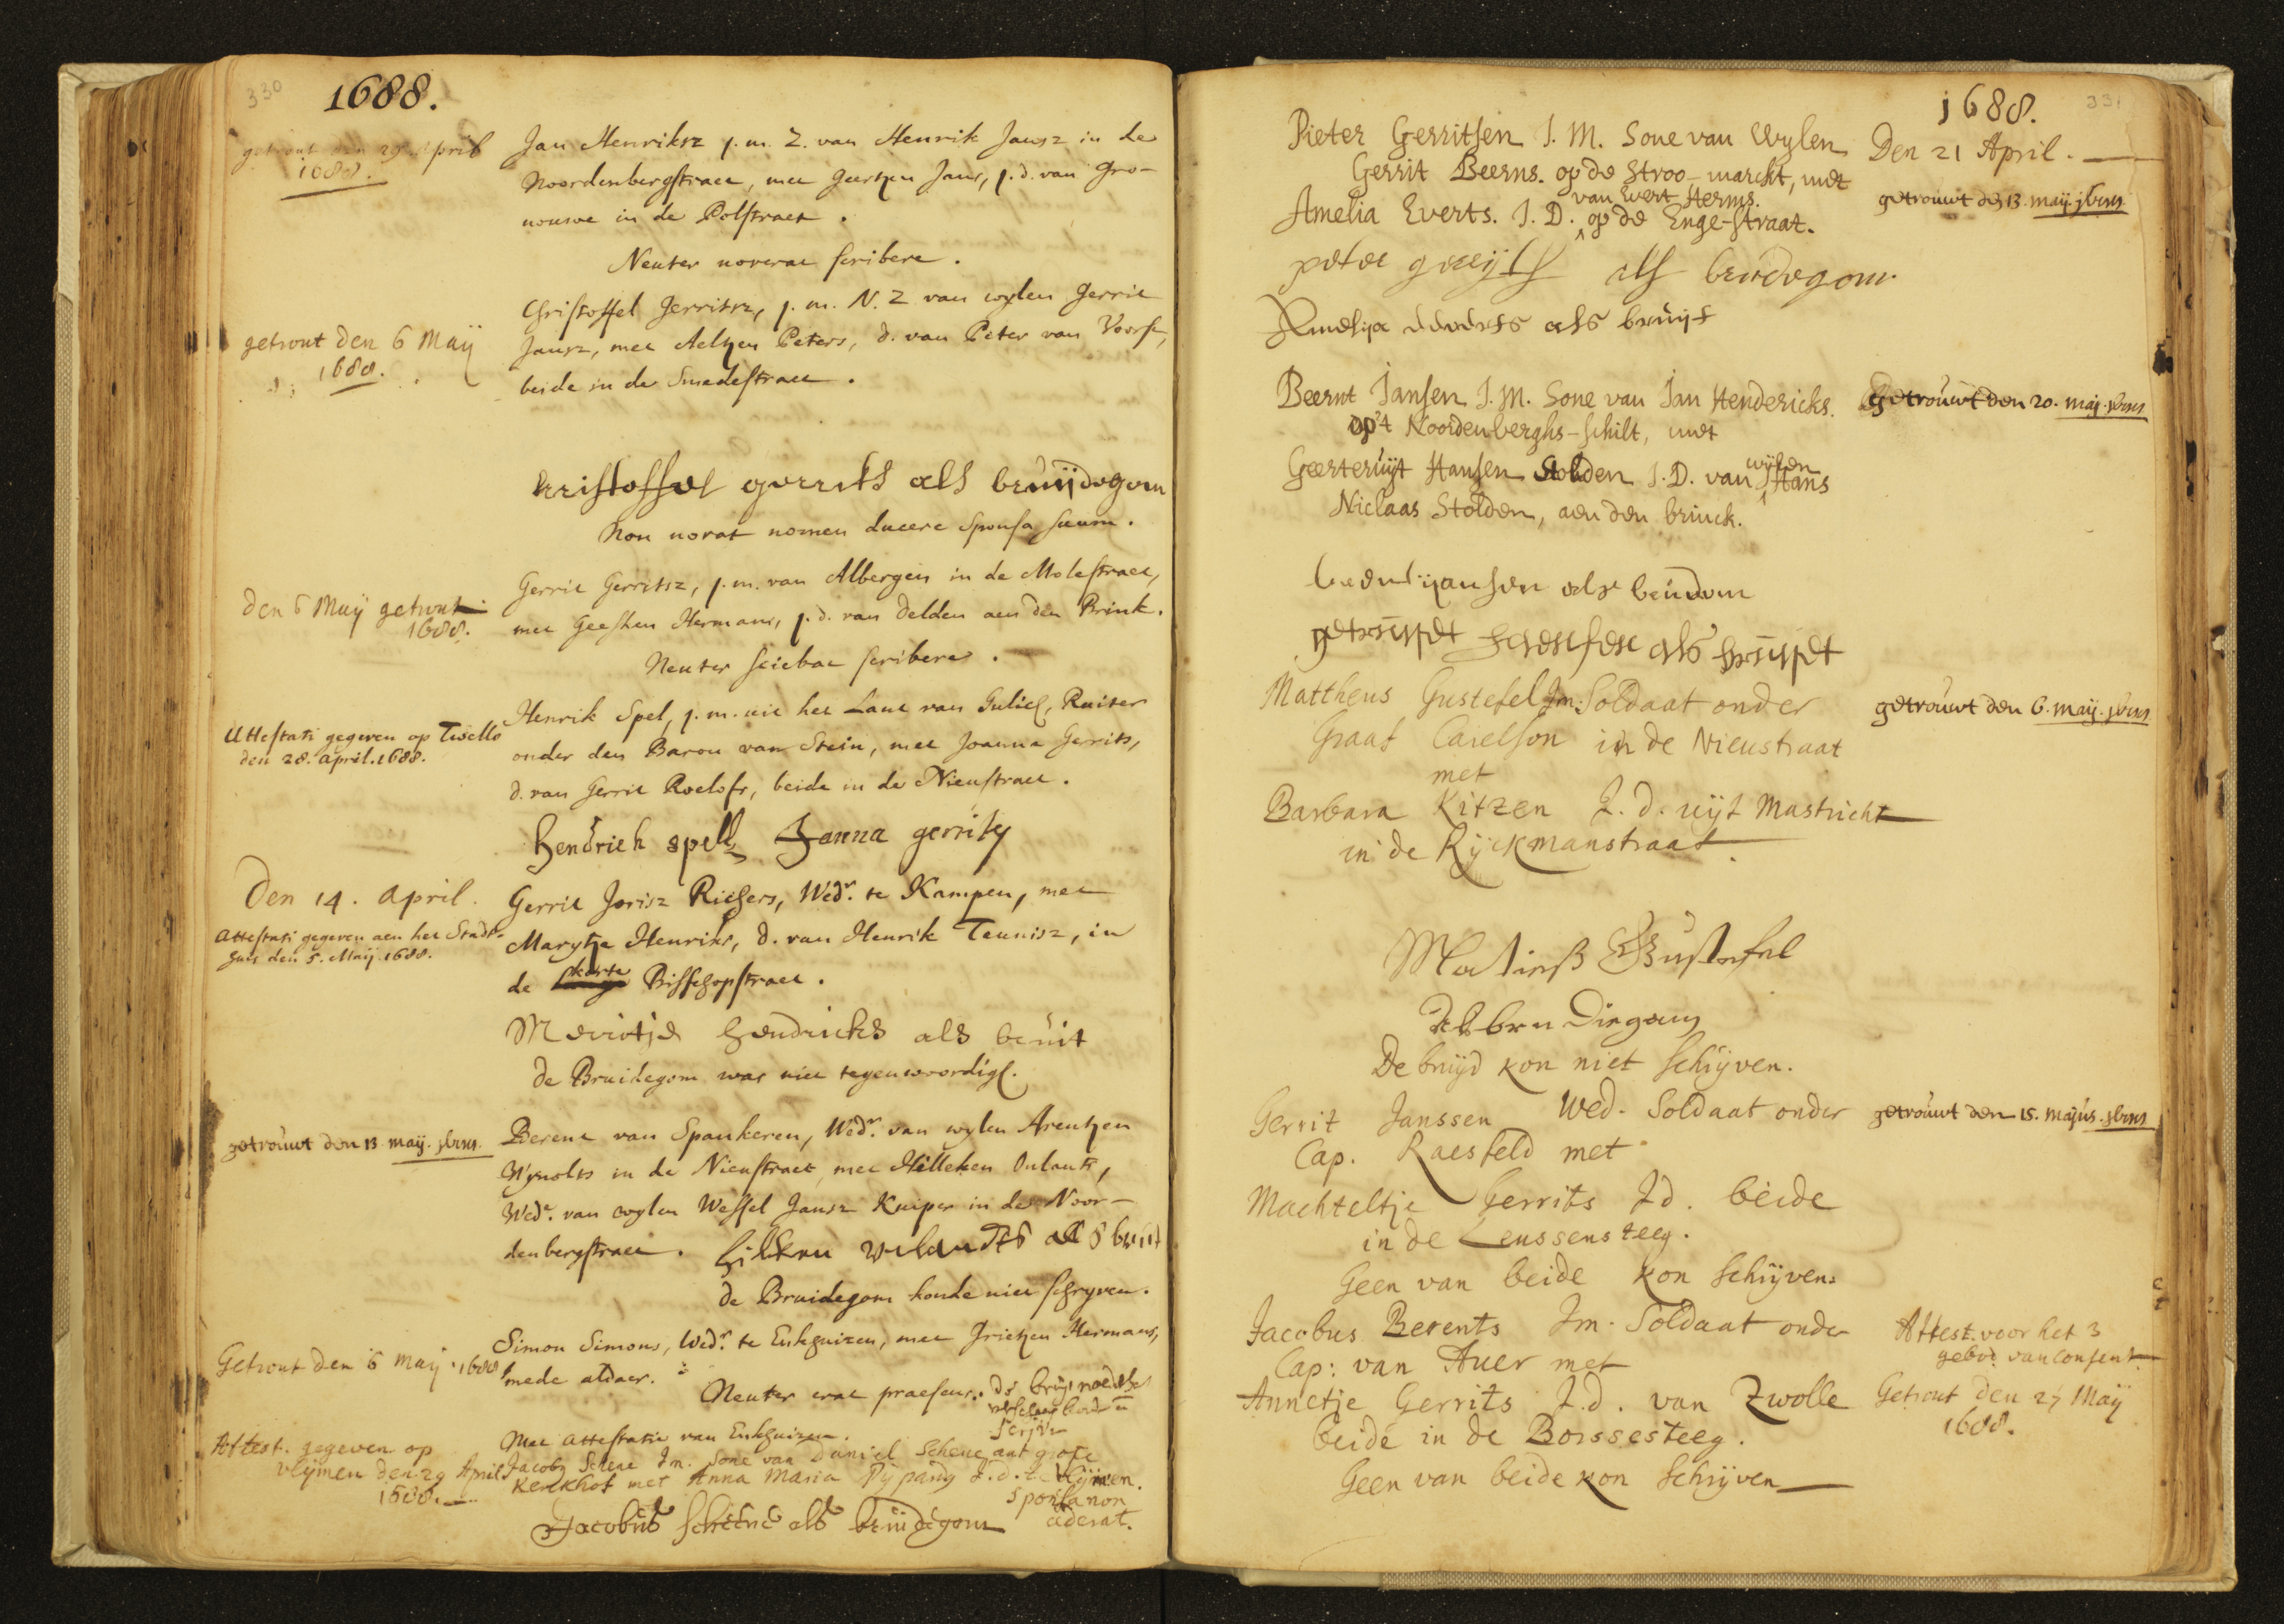 330
1688.
getrout den 29 April
1688.
Jan Henriksz j.m. Z. van Henrik Jansz in de
Noordenbergstraet, met Geertjen Jans, j.d. van Gro-
nouwe in de Polstraet.
Neuter noverat scribere.
getrout den 6 Maÿ
1688.
Christoffel Gerritsz, j.m. N.Z van wylen Gerrit
Jansz, met Aeltjen Peters, d. van Peter van Voorst,
beide in de Smedestraet.
kristoffel gerrits als bruijdegom
Non norat nomen ducere Sponsa suum.
den 6 Maÿ getrout
1688.
Gerrit Gerritsz, j.m. van Albergen in de Molestraet,
met Geesken Hermans, j.d. van Delden aen den Brink.
Neuter sciebat scribere.
Attestati gegeven op Twello
den 28. april. 1688.
Henrik Spel, j.m. uit het Lant van Gulich, Ruiter
onder den Baron van Stein, met Joanna Gerrits,
d. van Gerrit Roelofs, beide in de Nieustraet.
Hendrich spell Janna gerrits
Den 14. april.
Attestati gegeven aen het Stadt-
huis den 5. Maij 1688.
Gerrit Jorisz Richers, Wedr. te Kampen, met
Marytje Henriks, d. van Henrik Teunisz, in
de korte Bisschopstraet.
Merritje hendricks als bruit
de Bruidegom was niet tegenwoordigh.
getrouwt den 13 maij. 1688.
Berent van Spankeren, Wedr. van wylen Arentjen
Wynolts in de Nieustraet, met Hilleken Oulants,
Wede. van wylen Wessel Jansz Kuiper in de Noor-
denbergstraet. hilken als bruit
de Bruidegom konde niet schryven.
Getrout den 6 maij 1688
Simon Simons, Wedr. te Enkhuizen, met Grietjen Hermans,
mede aldaer.
Neuter erat praesens.
Met attestatie van Enkhuizen.
Attest. gegeven op
vlijmen den 29 April
1688.
Jacobs Scheue Jm. Sone van Daniel Scheue ant grote
kerckhof met Anna Maria Pijpands J.d. te Vlijmen.
Sponsa non
aderat.
Jacobus scheene als bruidegom
1688.
331
Pieter Gerritsen J.M. Sone van Wylen
Gerrit Beerns. op de Stroo-marckt, met
van Evert Herms.
Amelia Everts. J.D. op de Enge-straat.
Den 21 April.
getrouwt den 13. maij. 1688
peter als bruedegom
Amelija everts als bruijt
Beernt Jansen J.M. Sone van Jan Hendericks.
op't Noordenberghs-schilt, met
Geerteruijt Hansen Stolden J.D. van wijlen Hans
Niclaas Stolden, aen den brinck.
getrouwt den 20. maij. 1688
beernt ijansen als
getruijdt hansen als bruijdt
Mattheus Gustefel Jm. Soldaat onder
Graaf Carelson in de Nieustraat
met
Barbara Kitzen J.d. uijt Mastricht
in de Rijckmanstraat
getrouwt den 6. maij. 1688
Matieß Gustefel
De bruijd kon niet schrijven.
Gerrit Janssen Wed. Soldaat onder
Cap. Raesfeld met
Machteltje Gerrits Jd. beide
in de Leussensteeg.
Geen van beide kon schrijven.
getrouwt den 15. Majus. 1688
Jacobus Berents Jm. Soldaat onder
Cap: van Auer met
Annetje Gerrits J.d. van Zwolle
beide in de Borssesteeg.
Geen van beide kon schrijven
Attest. voor het 3
gebod. van Consent.
Getrout den 27 Maÿ
1688.